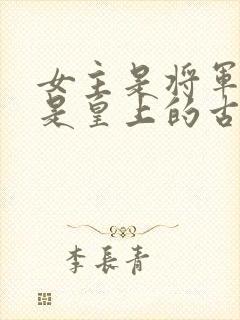 女主是将軍
是皇上的古
李長青